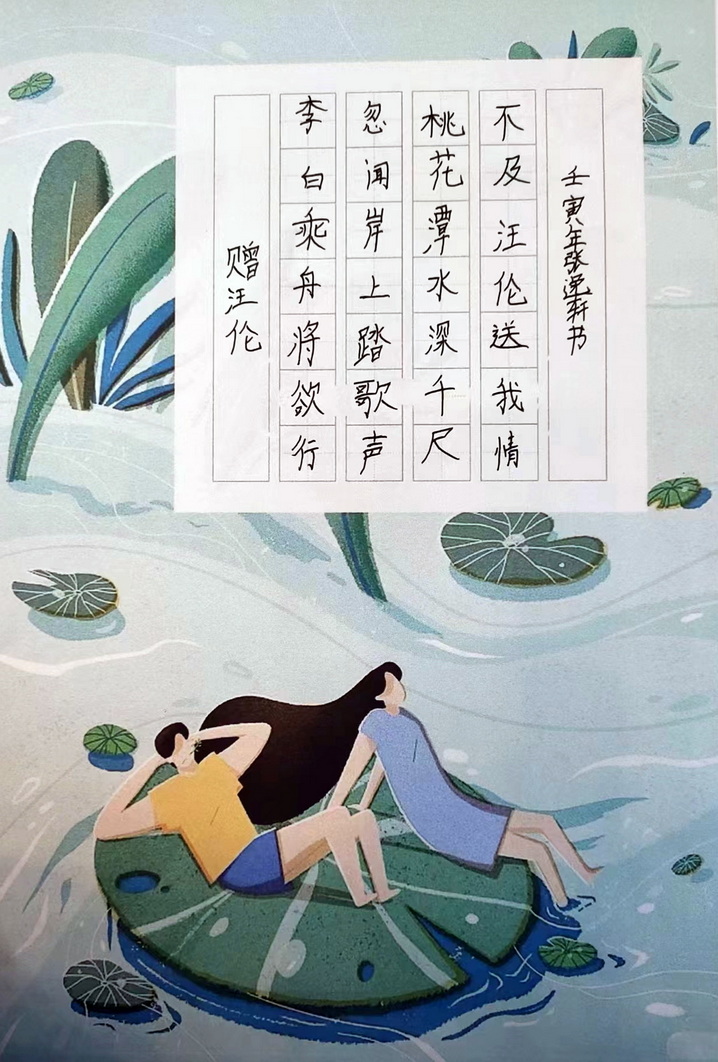 赠汪伦
李白乘舟将欲行
忽闻岸上踏歌声
桃花潭水深千尺
不及汪伦送我情
壬寅年张逸轩书